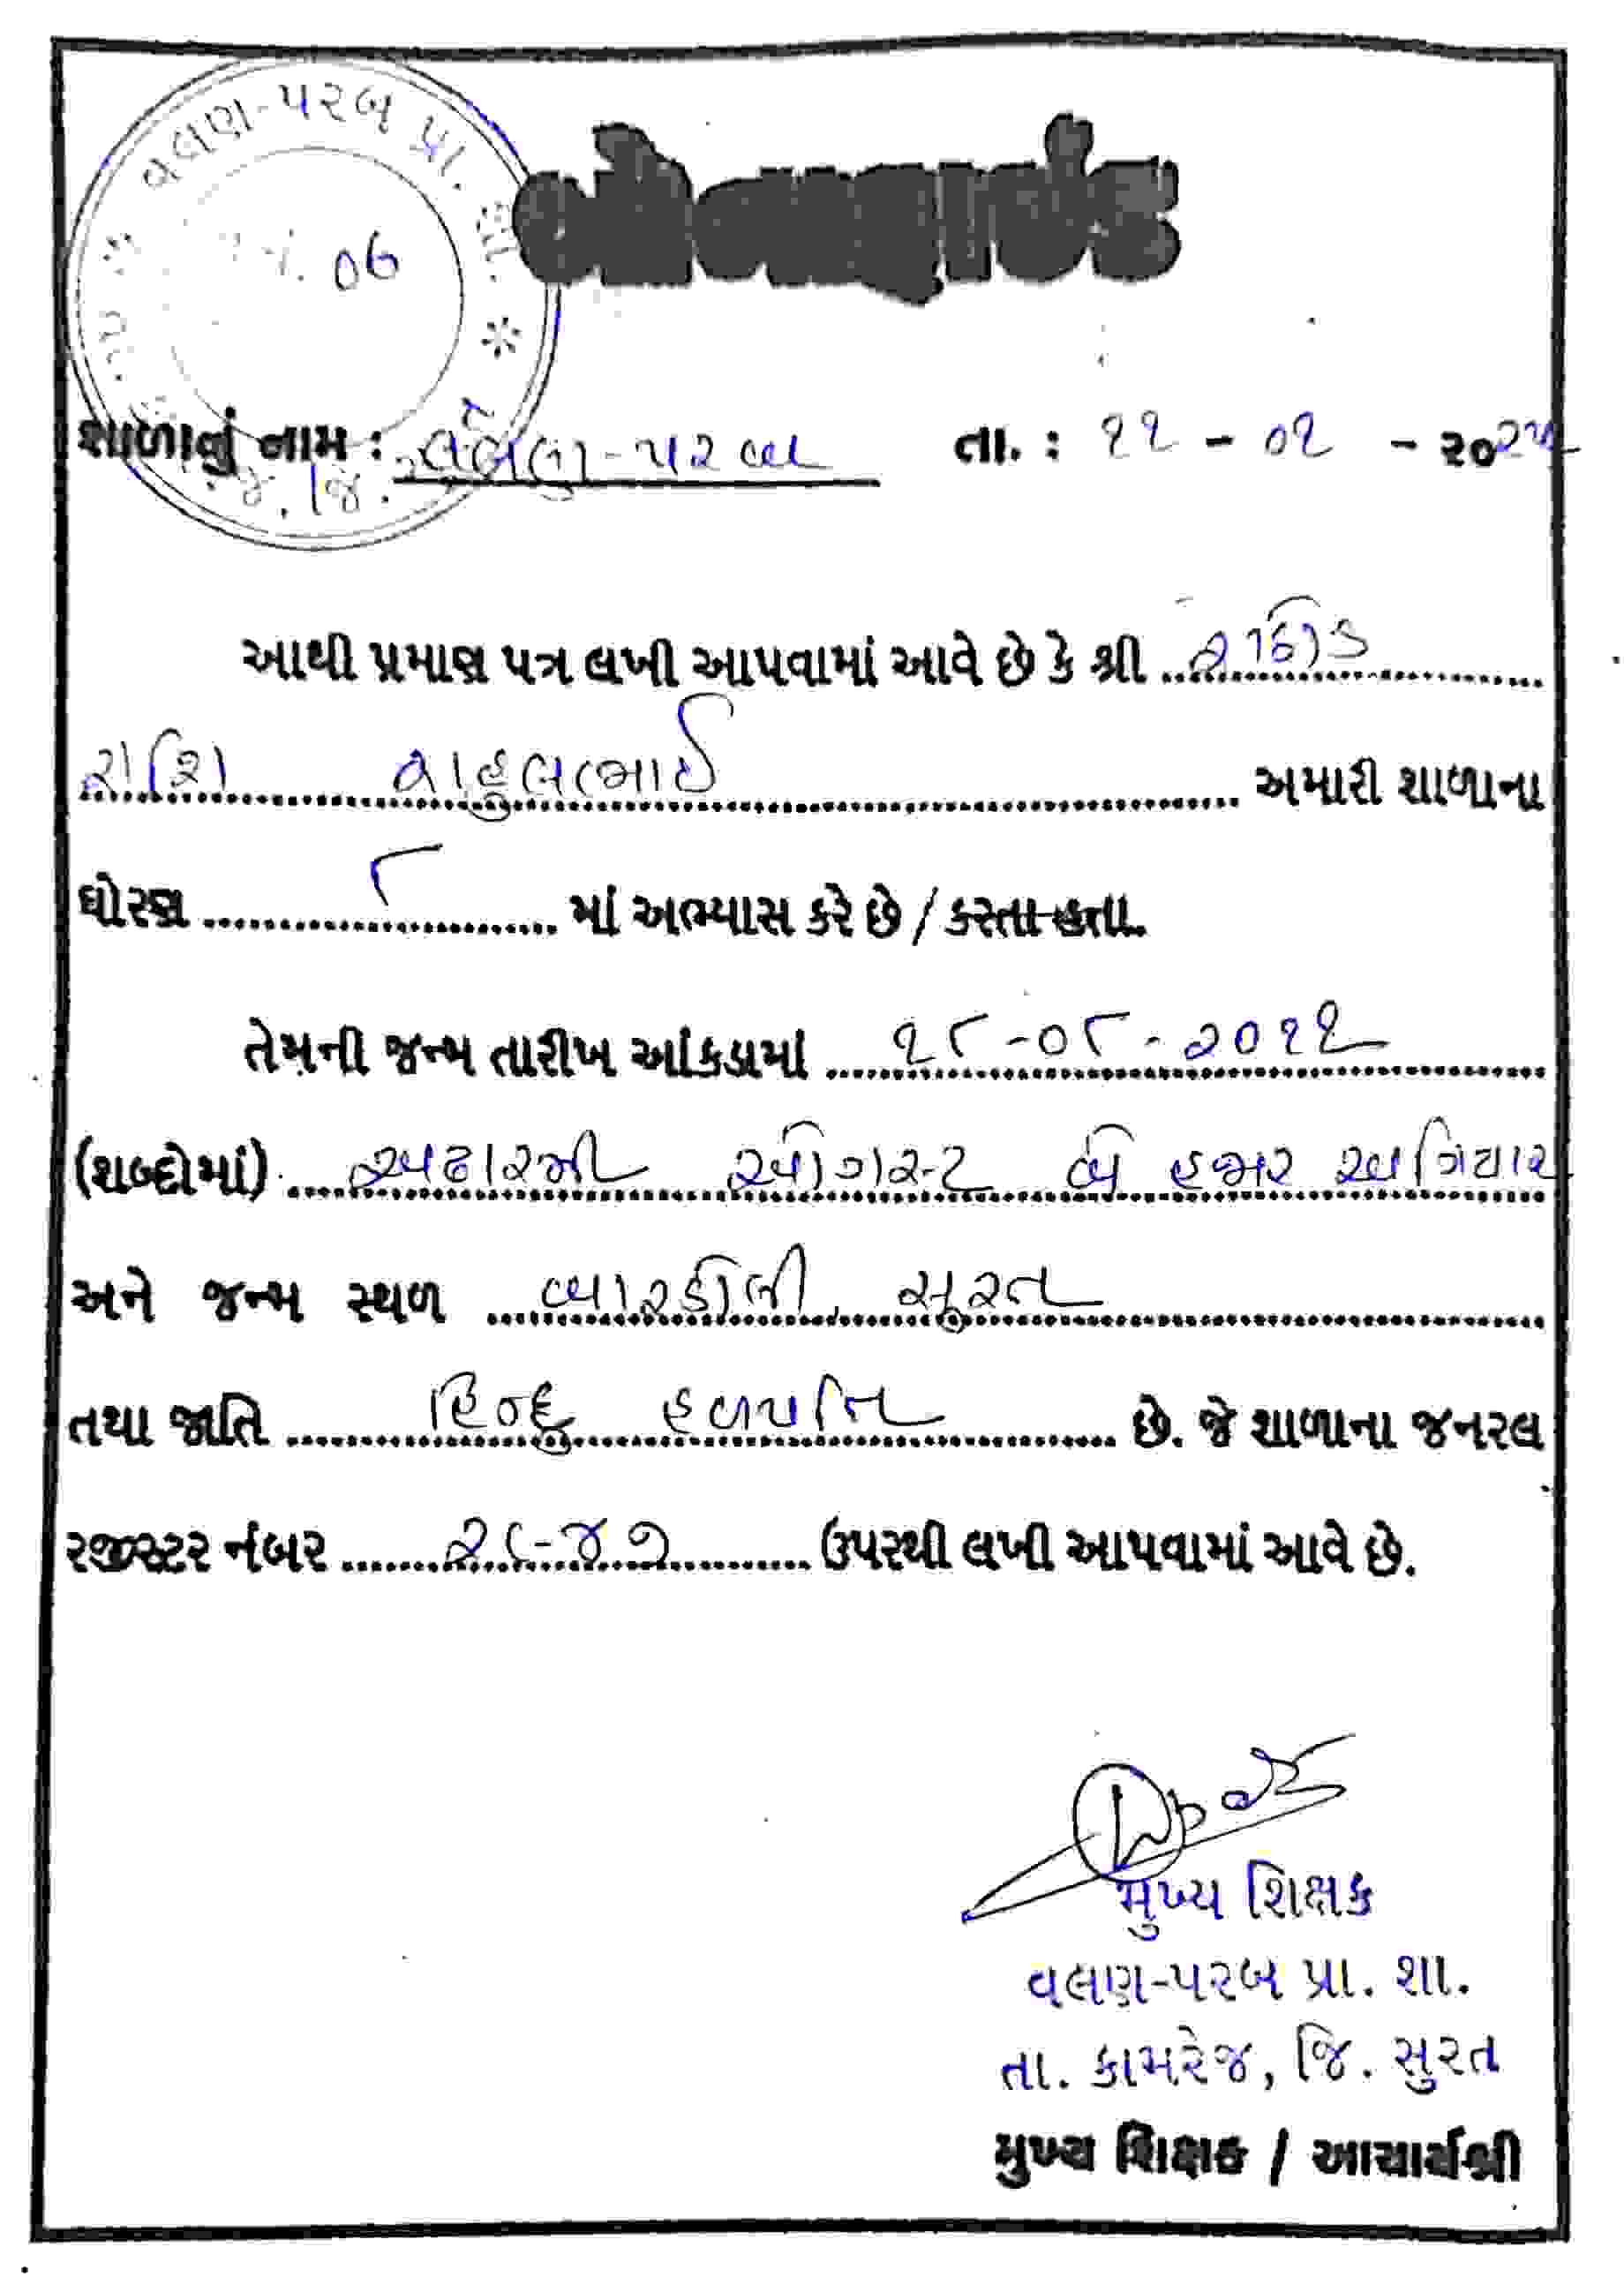 વલણ-પરબ પ્રા. શા.
બોનાફાઈડ
શાળાનું નામ : વલણ-પરબ તા. : ૧૧ - ૦૧ - ૨૦૨૫
આથી પ્રમાણ પત્ર લખી આપવામાં આવે છે કે શ્રી રાઠોડ
રાશિ રાહુલભાઈ અમારી શાળાના
ધોરણ ૮ માં અભ્યાસ કરે છે / કરતા હતા.
તેમની જન્મ તારીખ આંકડામાં ૧૮-૦૮-૨૦૧૧
(શબ્દોમાં) અઢારમી ઓગસ્ટ બે હજાર અગિયાર
અને જન્મ સ્થળ બારડોલી સુરત
તથા જાતિ હિન્દુ હળપતિ છે. જે શાળાના જનરલ
રજીસ્ટર નંબર ઉપરથી લખી આપવામાં આવે છે.
મુખ્ય શિક્ષક
વલણ-પરબ પ્રા. શા.
તા. કામરેજ, જિ. સુરત
મુખ્ય શિક્ષક / આચાર્યશ્રી